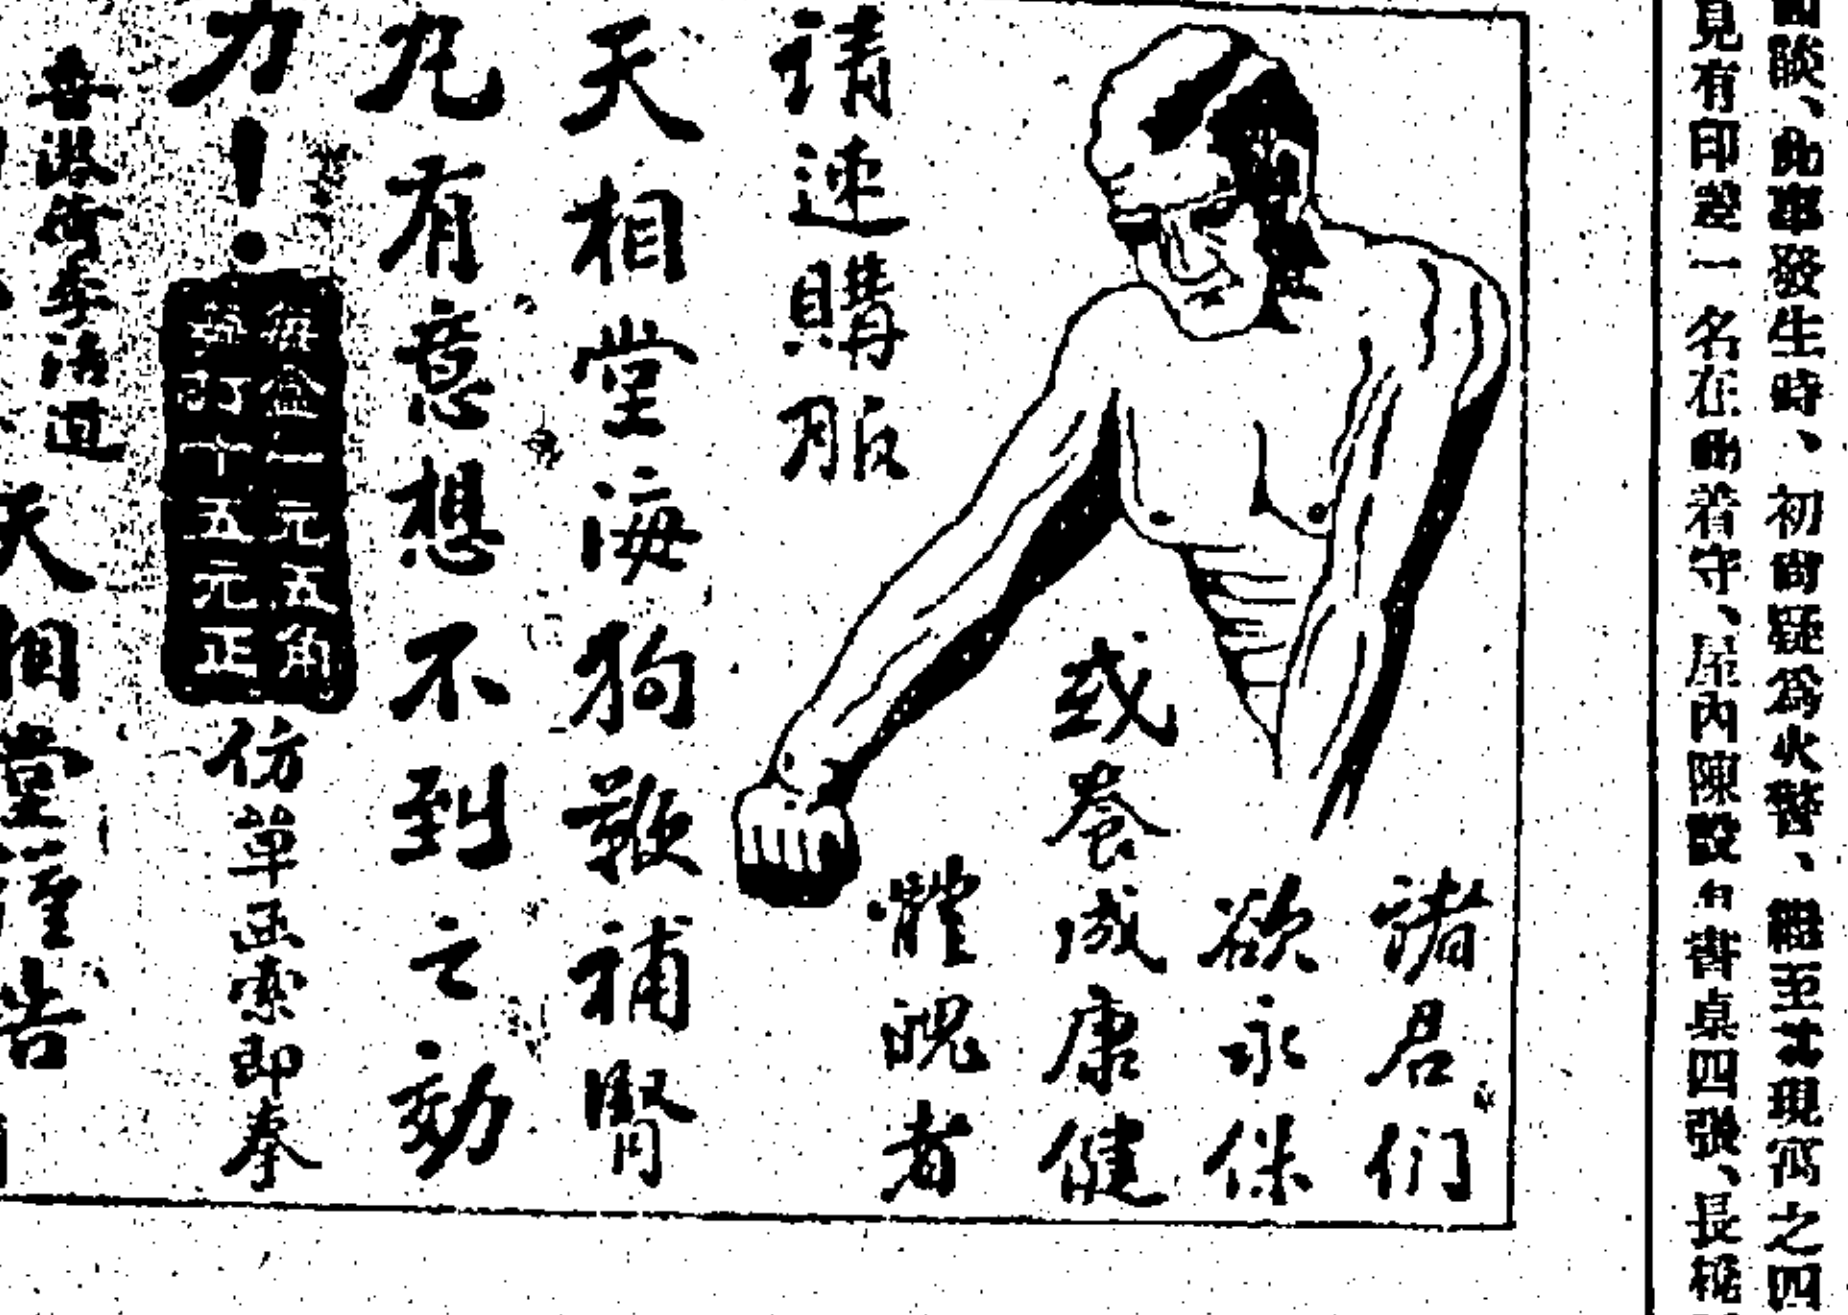 談、此事發生時、初尙疑爲火警、繼至其現寓之四
見有印差一名在此着守、屋內陳設有書桌四張、長櫈
諸君们
欲永保
或養成康健
體魄者
請速購服
天相堂海狗鞭補腎
丸有意想不到之効
力！
每盒一元五角
每打十五元正
仿單函索即奉
香港荷李活道
天相堂謹告